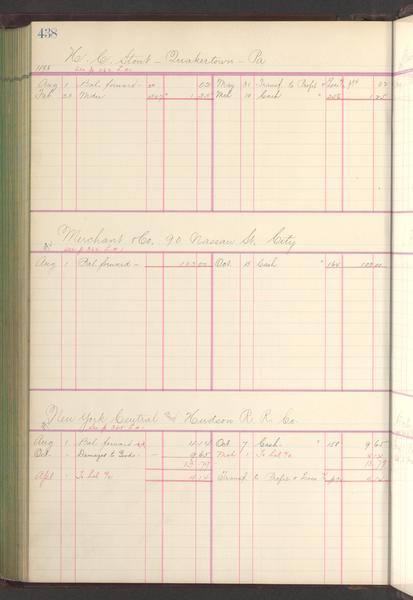 438
H. C. Stout - Quakertown - Pa
1885
Aug 1 Bal. forward - 02 May 31 Transf. to Profit & Loss 02
Feb 23 Mdse 1 25 Mch 10 Cash " 1 25
Merchant & Co. 90 Nassau St. City
Aug 1 Bal. forward - 103 00 Oct. 15 Cash " 164 103 00
New York Central and Hudson R. R. Co.
Aug 1 Bal. forward 4 14 Oct 7 Cash - " 158 9 65
Oct - Damages to Goods - 9 65 Mch 1 To bal 4 14
13 79 13 79
Apl - To bal 4 14 Transf. to Profit & Loss 4 14